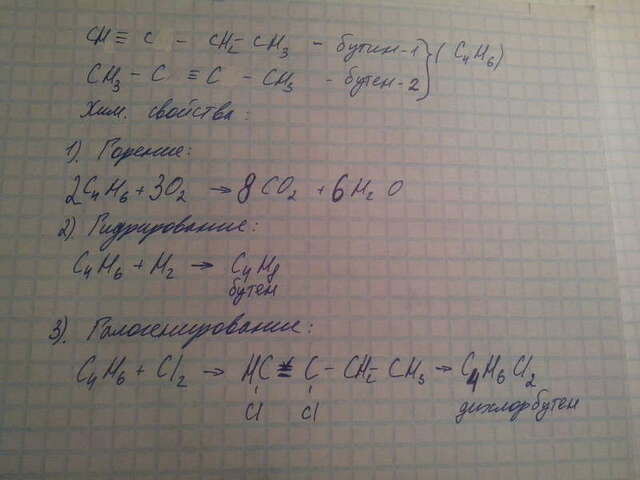 CH ≡ C - CH₂ - CH₃ - бутин-1 } (C₄H₆)
CH₃ - C ≡ C - CH₃ - бутен-2
Хим. свойства:
1). Горение:
2C₄H₆ + 3O₂ → 8CO₂ + 6H₂O
2). Гидрирование:
C₄H₆ + H₂ → C₄H₈
бутен
3). Галогенирование:
C₄H₆ + Cl₂ → HC = C - CH₂ CH₃ → C₄H₆Cl₂
Cl Cl дихлорбутен